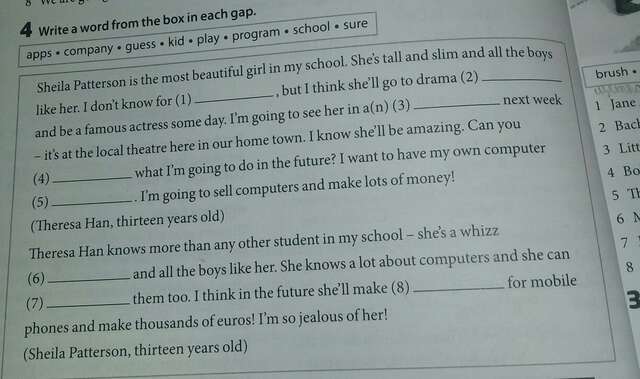 4 Write a word from the box in each gap.
apps • company • guess • kid • play • program • school • sure
Sheila Patterson is the most beautiful girl in my school. She's tall and slim and all the boys
like her. I don't know for (1) __________, but I think she'll go to drama (2) __________
and be a famous actress some day. I'm going to see her in a(n) (3) __________ next week
– it's at the local theatre here in our home town. I know she'll be amazing. Can you
(4) __________ what I'm going to do in the future? I want to have my own computer
(5) __________. I'm going to sell computers and make lots of money!
(Theresa Han, thirteen years old)
Theresa Han knows more than any other student in my school – she's a whizz
(6) __________ and all the boys like her. She knows a lot about computers and she can
(7) __________ them too. I think in the future she'll make (8) __________ for mobile
phones and make thousands of euros! I'm so jealous of her!
(Sheila Patterson, thirteen years old)
brush •
1 Jane
2
3
4
5
6
7
8
3